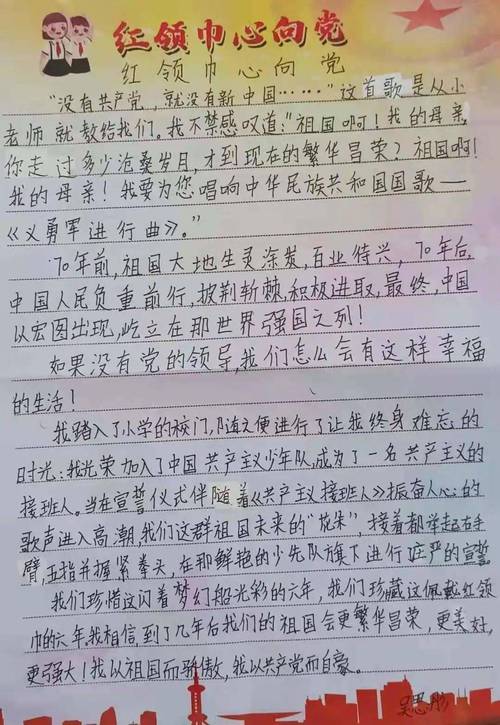 红领巾心向党
红领巾心向党
“没有共产党，就没有新中国……”这首歌是从小
老师就教给我们。我不禁感叹道：“祖国啊！我的母亲，
你走过多少沧桑岁月，才到现在的繁华昌荣？祖国啊！
我的母亲！我要为您唱响中华民族共和国国歌——
《义勇军进行曲》。”
70年前，祖国大地生灵涂炭，百业待兴，70年后，
中国人民负重前行，披荆斩棘，积极进取，最终，中国
以宏图出现，屹立在那世界强国之列！
如果没有党的领导，我们怎么会有这样幸福
的生活！
我踏入了小学的校门，随之便进行了让我终身难忘的
时光：我光荣加入了中国共产主义少年队，成为了一名共产主义的
接班人。当在宣誓仪式伴随着《共产主义接班人》振奋人心的
歌声进入高潮，我们这群祖国未来的“花朵”，接着都举起右手
臂，五指并握紧拳头，在那鲜艳的少先队旗下进行庄严的宣誓
我们珍惜这闪着梦幻般光彩的六年，我们珍藏这佩戴红领
巾的六年。我相信，到了几年后我们的祖国会更繁华昌荣，更美好，
更强大！我以祖国而骄傲，我以共产党而自豪。
吴思彤